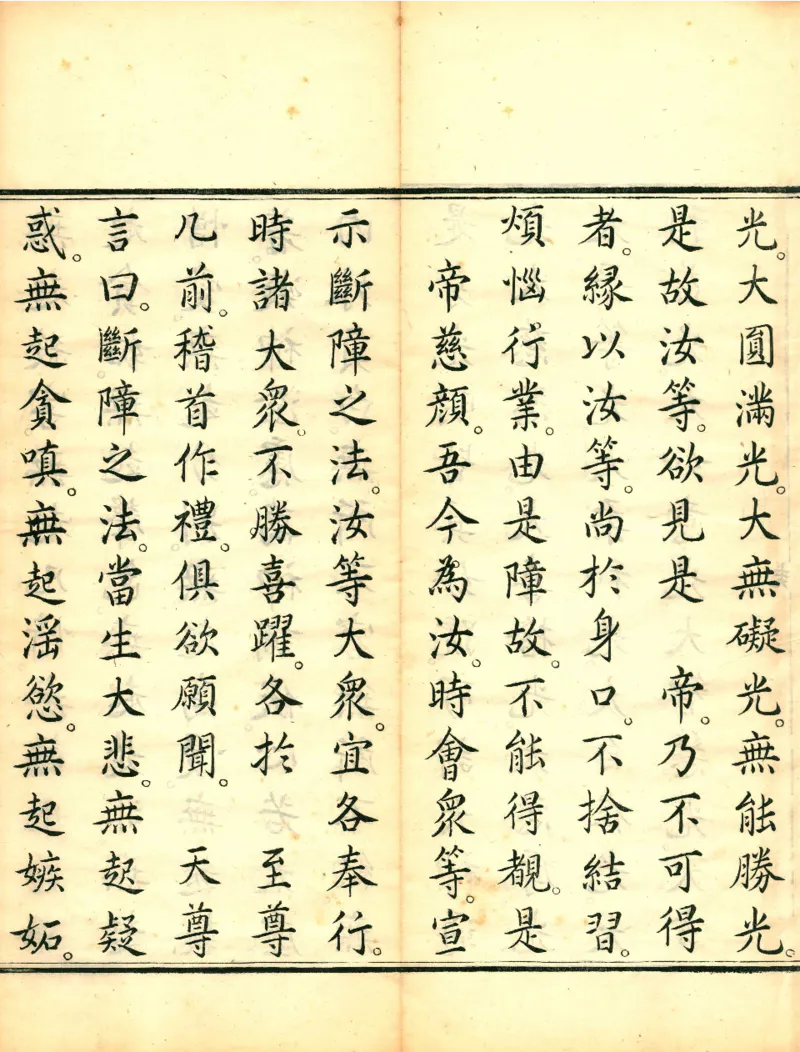 光。大圓滿光。大無礙光。無能勝光。
是故汝等。欲見是　帝。乃不可得
者。緣以汝等。尚於身口。不捨結習。
煩惱行業。由是障故。不能得覩。是
帝慈顏。吾今為汝。時會衆等。宣
示斷障之法。汝等大衆。宜各奉行。
時諸大衆。不勝喜躍。各於　至尊
几前。稽首作禮。俱欲願聞。　天尊
言曰。斷障之法。當生大悲。無起疑
惑。無起貪嗔。無起淫慾。無起嫉妬。